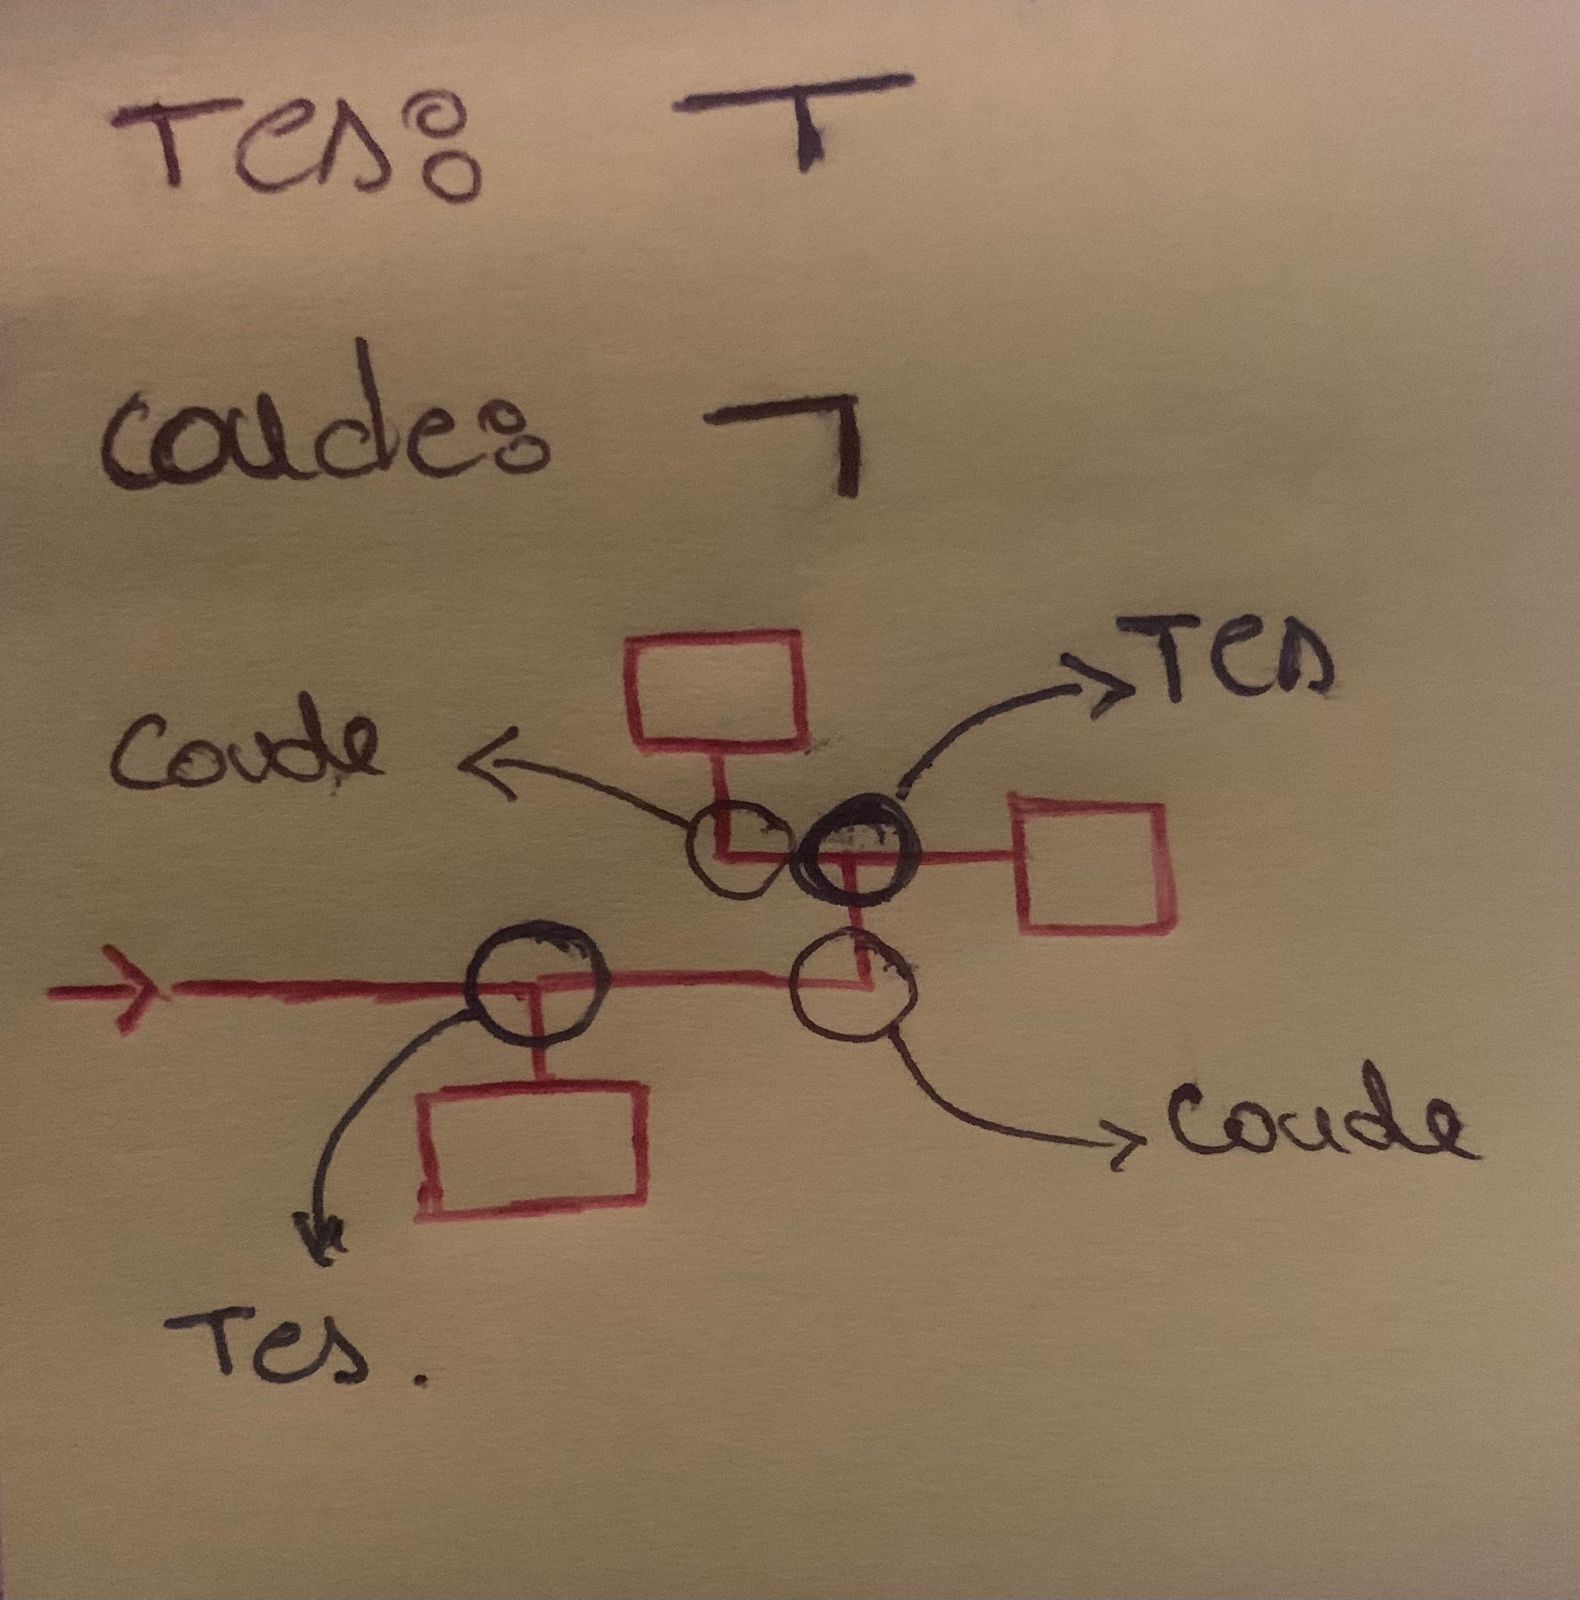 Tes:
coude:
Tes
Coude
Coude
Tes.